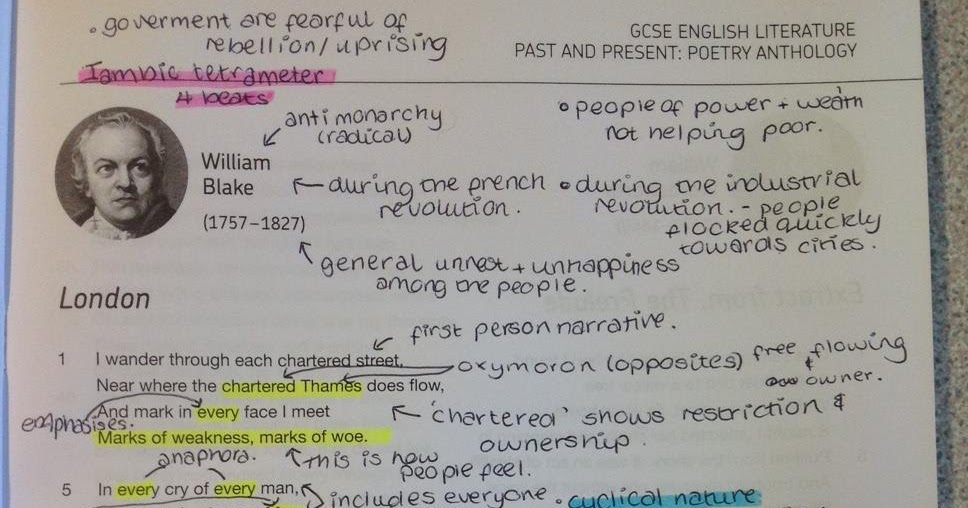 . goverment are fearful of
rebellion/uprising
GCSE ENGLISH LITERATURE
PAST AND PRESENT: POETRY ANTHOLOGY
Iambic tetrameter
4 beats
anti monarchy
(radical)
• people of power + wealth
not helping poor.
William
Blake
(1757–1827)
←during the french
revolution.
• during the industrial
revolution. - people
flocked quickly
towards cities.
general unrest + unhappiness
among the people.
London
first person narrative.
1 I wander through each chartered street,
oxymoron (opposites) free flowing
+
owner.
Near where the chartered Thames does flow,
And mark in every face I meet
emphasises.
← 'chartered' shows restriction &
ownership
Marks of weakness, marks of woe.
anaphora.
this is how
people feel.
5 In every cry of every man,
includes everyone. cyclical nature